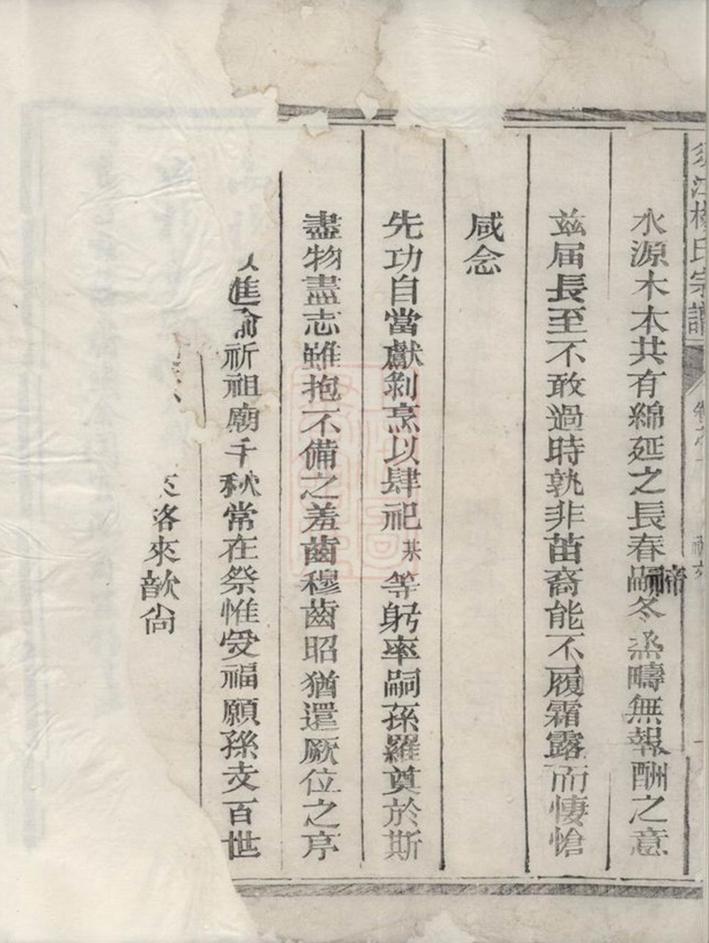 江楊氏宗譜
水源木本共有綿延之長春嗣冬烝疇無報酬之意
禘
玆届長至不敢過時孰非苗裔能不履霜露而悽愴
咸念
先功自當獻剝烹以肆祀某等躬率嗣孫羅奠於斯
盡物盡志雖抱不備之羞齒穆齒昭猶還厥位之序
進瑜祈祖廟千秋常在祭惟受福願孫支百世
洛來歆尙